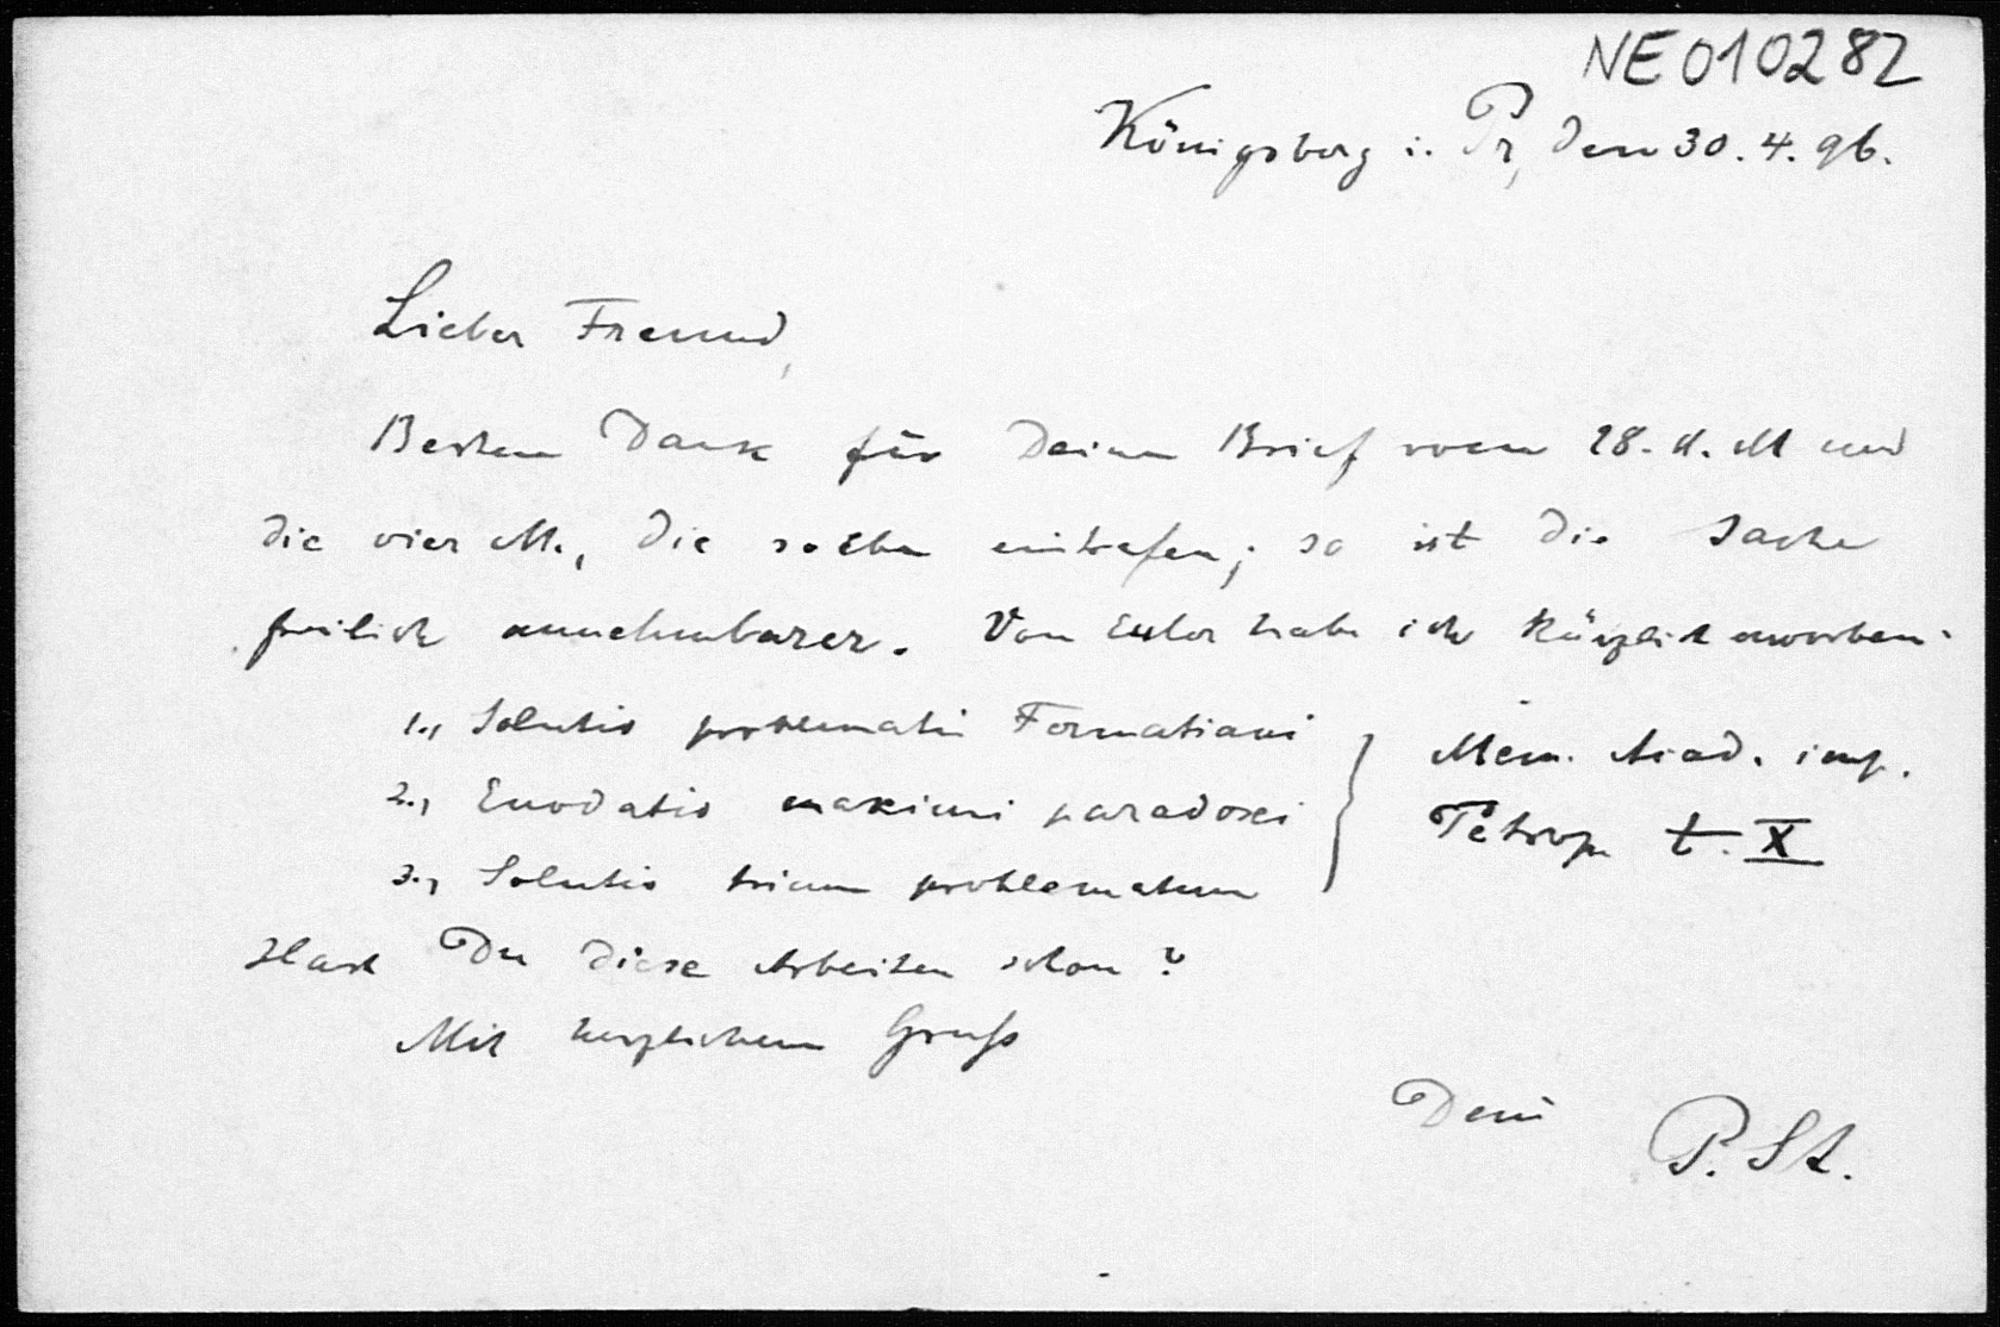 NE010282
Königsberg i. Pr, den 30.4.96.
Lieber Freund,
Besten Dank für Deinen Brief vom 28. d. M und
die vier M., die soeben eintrafen; so ist die Sache
freilich annehmbarer. Von Euler habe ich kürzlich erworben:
1., Solutio problematis Fermatiani
2., Enodatio maximi paradoxi
3., Solutio trium problematum
Mem. Acad. imp.
Petrop. t. X
Hast Du diese Arbeiten schon?
Mit herzlichem Gruß
Dein
P. St.